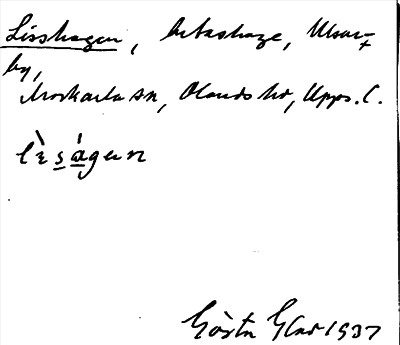 Lisshagen, beteshage,
by,
Morkarla sn, Olands hd, Upps. l.
lìságen
Gösta 1937